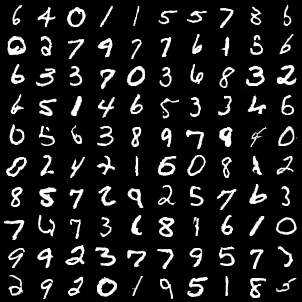 6 4 0 1 1 5 5 7 8 6
2 2 7 9 7 7 6 1 5 6
6 3 3 7 0 3 6 8 3 2
6 5 1 4 6 5 3 3 4 6
0 5 6 3 8 9 7 9 4 0
8 2 4 2 1 6 0 8 1 2
8 8 7 2 9 2 5 7 6 3
7 4 7 3 6 8 1 6 1 0
9 9 2 3 7 7 9 5 7 3
2 9 2 0 1 9 5 1 8 5